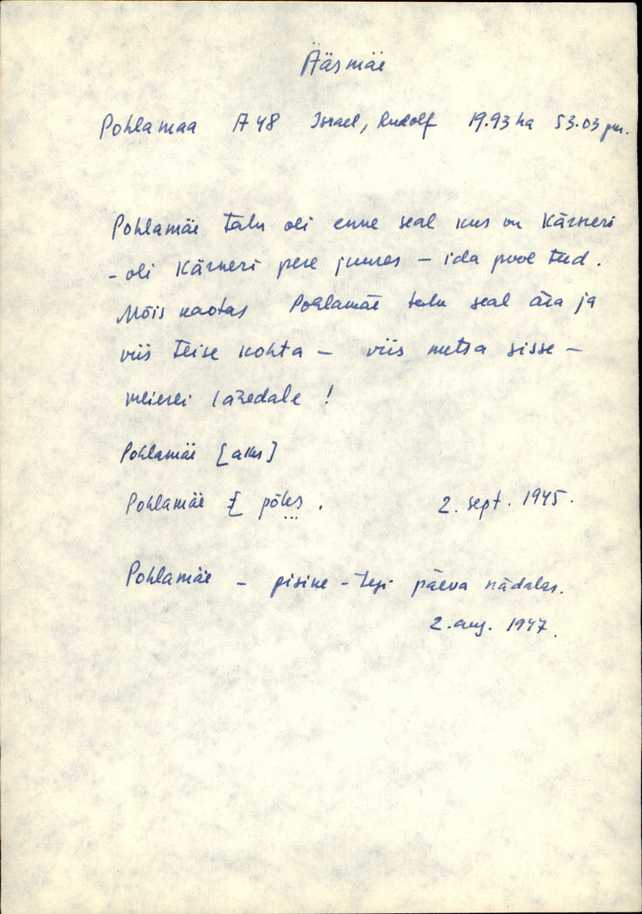 Ääsmäe
Pohlamaa A48 Israel, Rudolf 19.93 ha 53.03
Pohlamäe talu oli enne seal kus on Kärneri
- oli Kärneri pere juures - ida pool teed.
Mõis kaotas Pohlamäe talu seal ära ja
viis teise kohta - viis metsa sisse -
meierei lähedale!
Pohlamäe [
Pohlamäe põles. 2. sept. 1945.
Pohlamäe - pisike - tegi päeva nädalas.
2. aug. 1947.